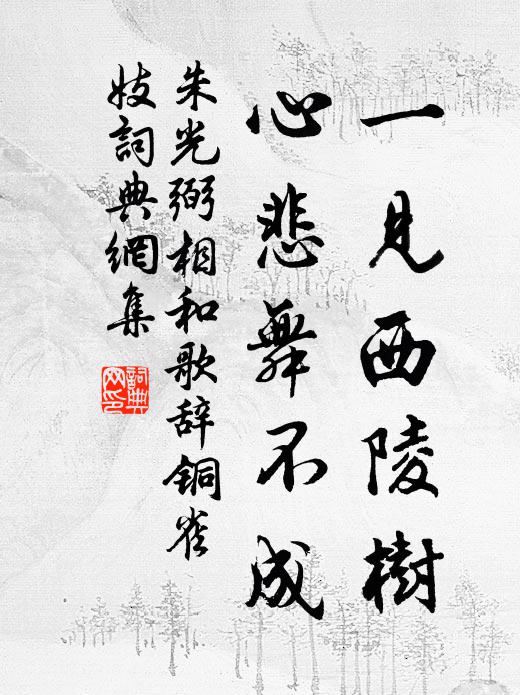 一見西陵樹
心悲舞不成
朱光弼相和歌辞铜雀
妓詞典網集
詞典
网印